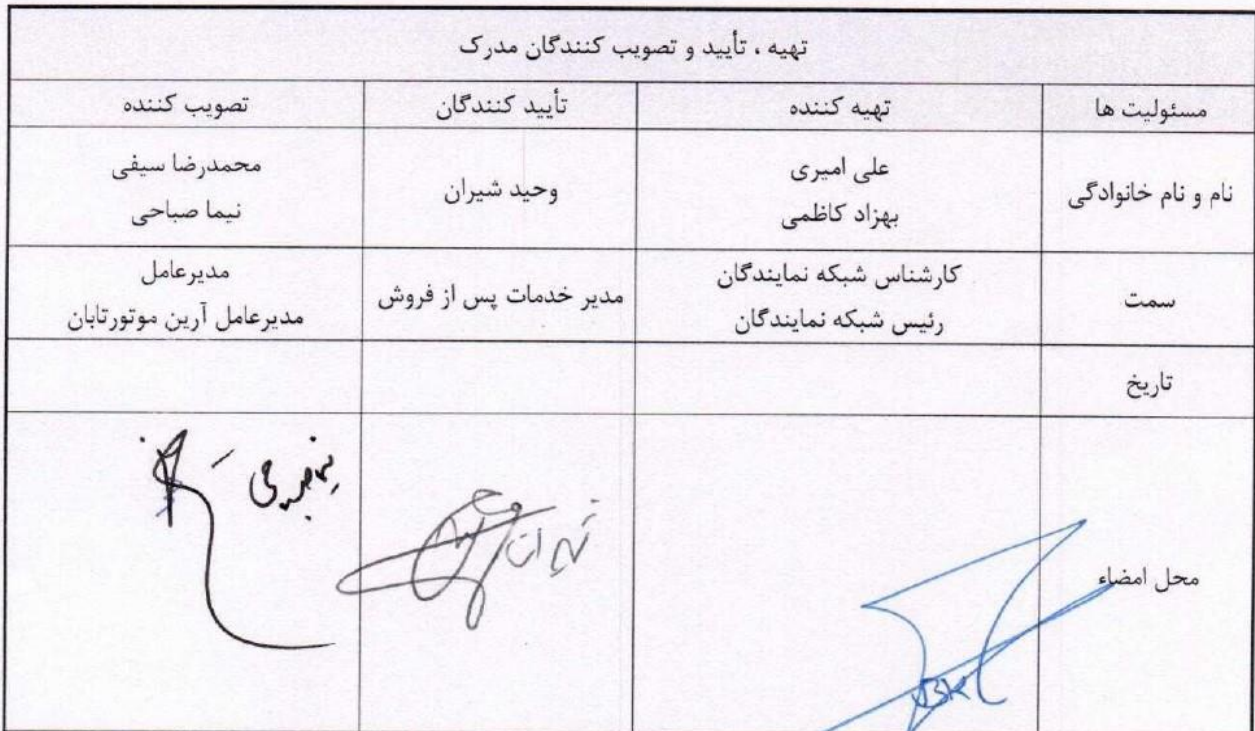 تهیه ، تأیید و تصویب کنندگان مدرک
مسئولیت ها تهیه کننده تأیید کنندگان تصویب کننده
نام و نام خانوادگی
علی امیری
بهزاد کاظمی
وحید شیران
محمدرضا سیفی
نیما صباحی
سمت
کارشناس شبکه نمایندگان
رئیس شبکه نمایندگان
مدیر خدمات پس از فروش
مدیرعامل
مدیرعامل آرین موتورتابان
تاریخ
محل امضاء
شیران